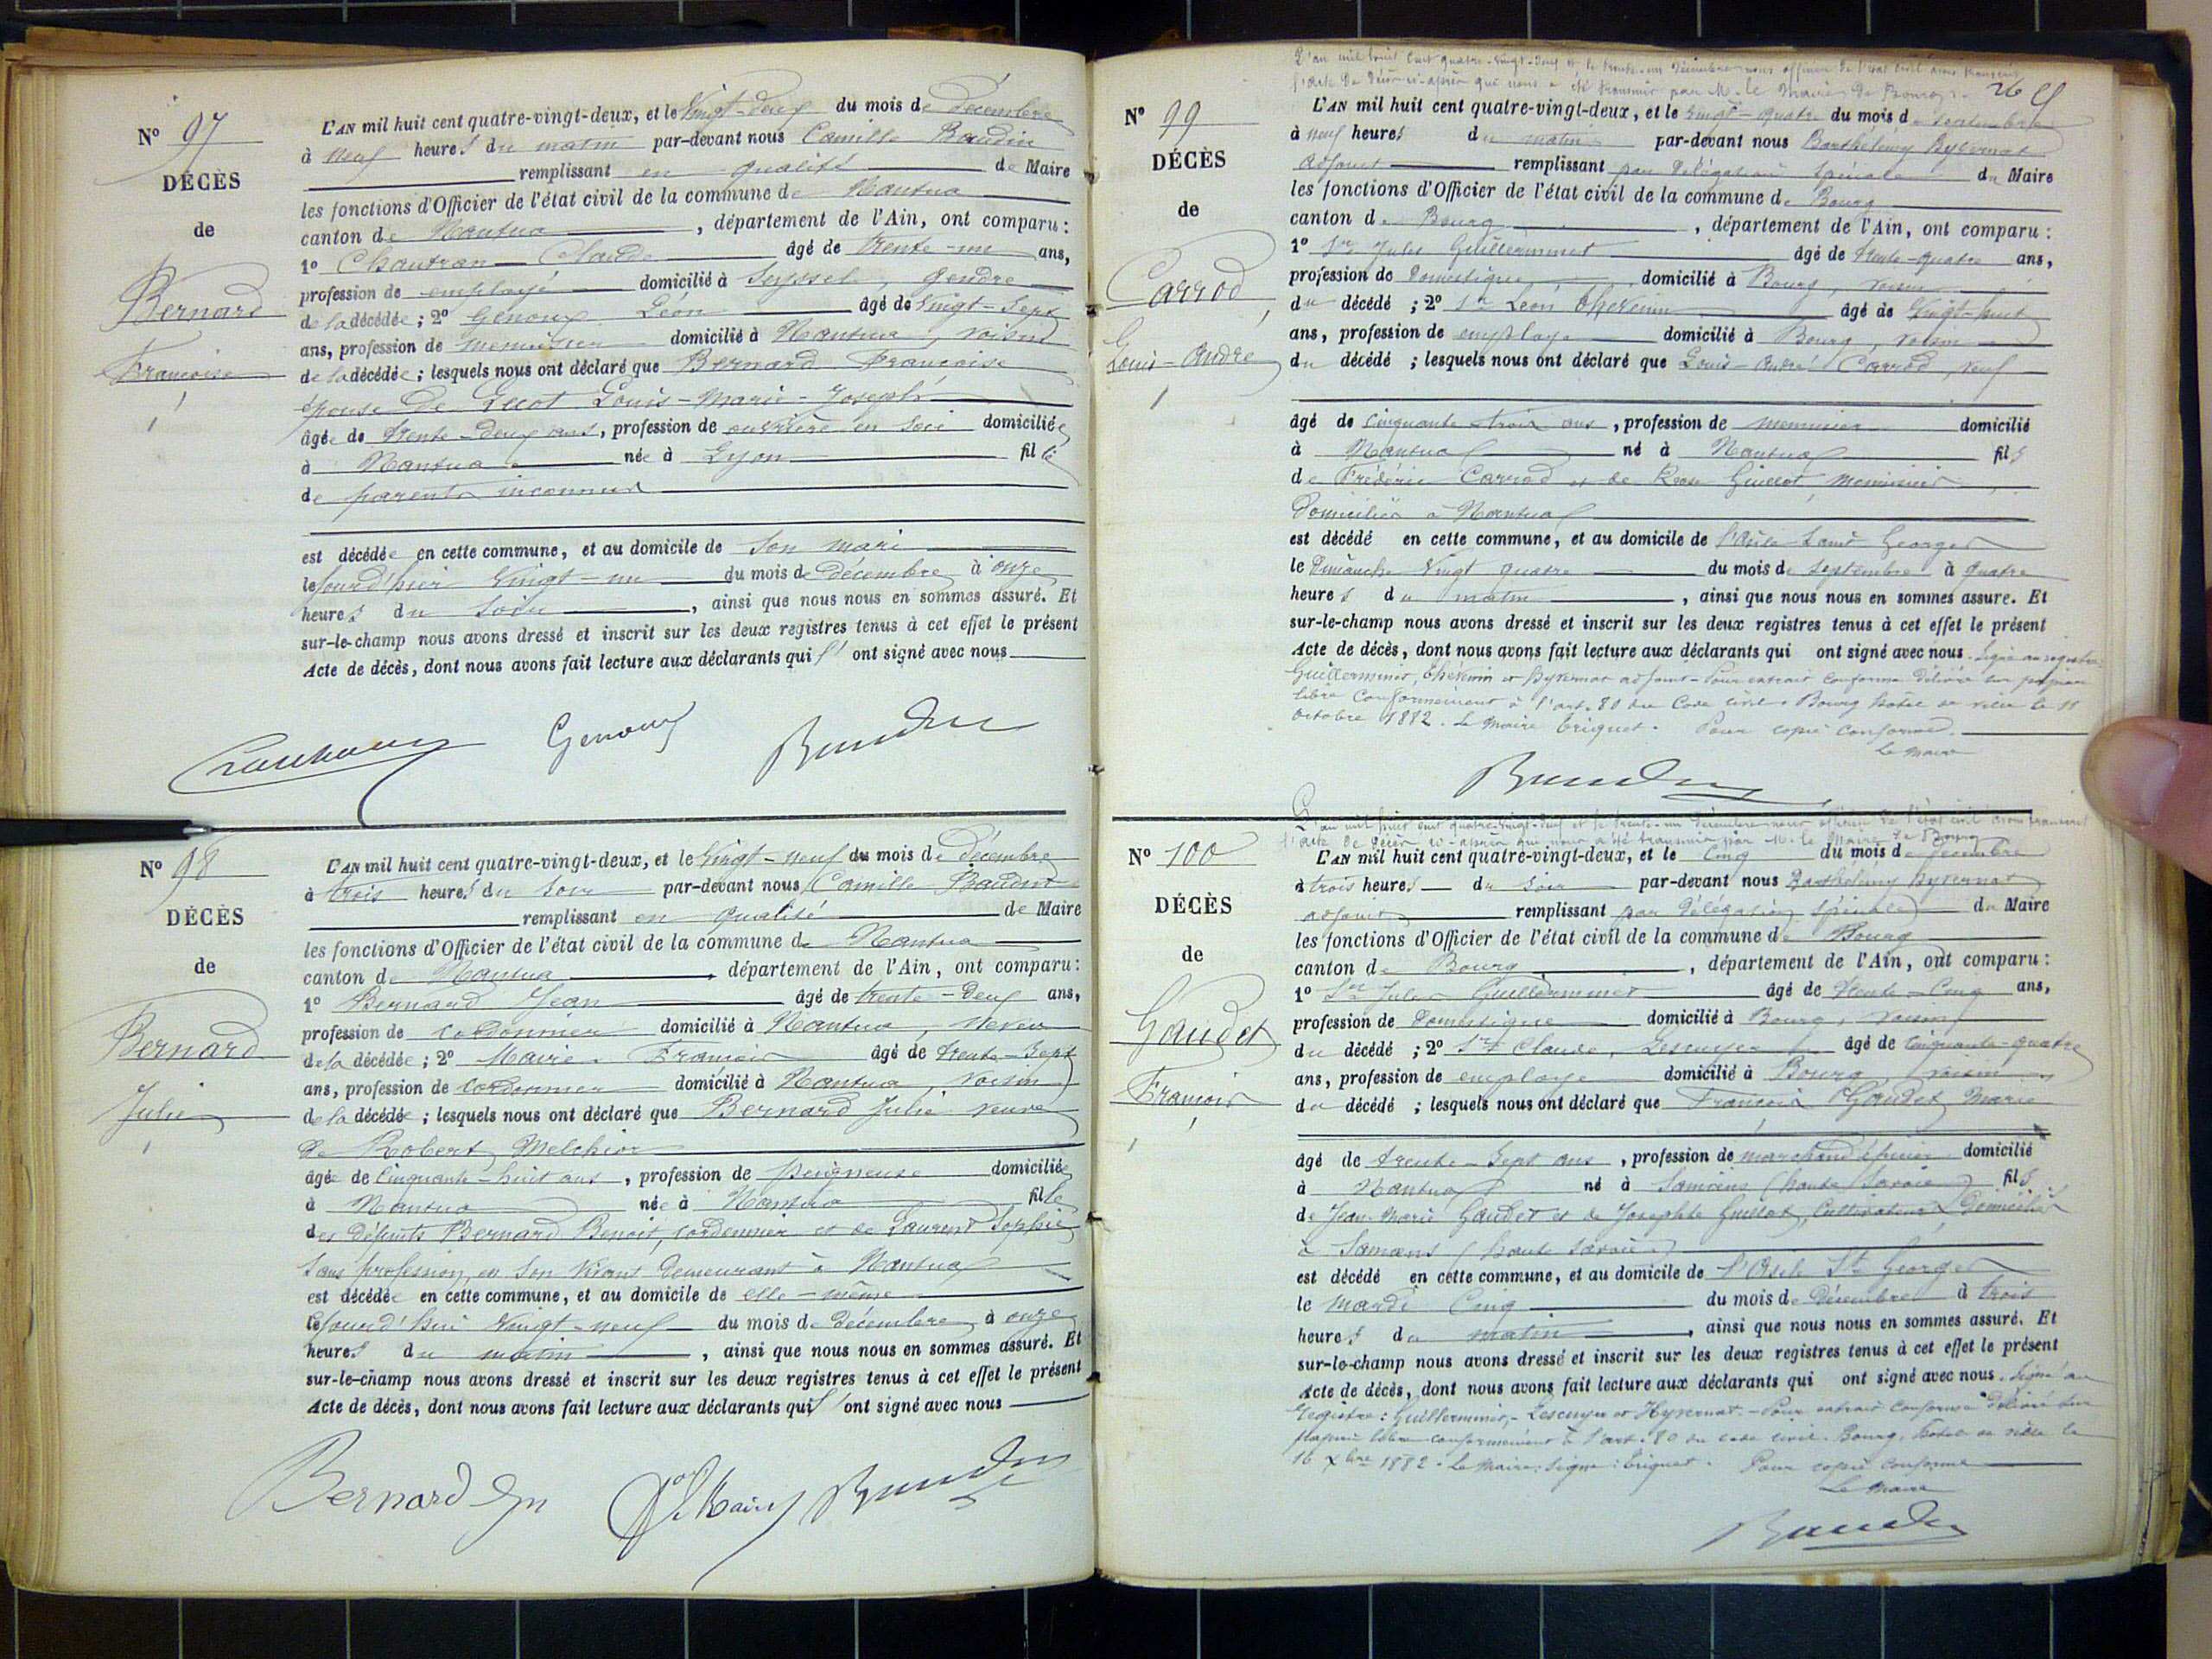 N° 97
DÉCÈS
de
Bernard
Françoise
L'AN mil huit cent quatre-vingt-deux, et le Vingt-deux du mois de décembre
à neuf heures du matin par-devant nous Camille Baudin
remplissant en qualité de Maire
les fonctions d'Officier de l'état civil de la commune de Nantua
canton de Nantua, département de l'Ain, ont comparu :
1° Chautran Claude âgé de trente-un ans,
profession de employé domicilié à Seyssel, gendre
de la décédée ; 2° Genoux Léon âgé de Vingt-Sept
ans, profession de menuisier domicilié à Nantua, voisin
de la décédée ; lesquels nous ont déclaré que Bernard Françoise
épouse de Louis-Marie-Joseph
âgée de trente-deux ans, profession de ouvrière en soie domiciliée
à Nantua née à Lyon fille
de parents inconnus
est décédée en cette commune, et au domicile de Son mari
le jourd'hier Vingt-un du mois de décembre à onze
heures du Soir, ainsi que nous nous en sommes assuré. Et
sur-le-champ nous avons dressé et inscrit sur les deux registres tenus à cet effet le présent
Acte de décès, dont nous avons fait lecture aux déclarants qui l' ont signé avec nous
Genoux Baudin
N° 98
DÉCÈS
de
Bernard
Julie
L'AN mil huit cent quatre-vingt-deux, et le Vingt-neuf du mois de décembre
à trois heures du Soir par-devant nous Camille Baudin
remplissant en qualité de Maire
les fonctions d'Officier de l'état civil de la commune de Nantua
canton de Nantua, département de l'Ain, ont comparu :
1° Bernard Jean âgé de trente-deux ans,
profession de cordonnier domicilié à Nantua, neveu
de la décédée ; 2° Maire François âgé de trente-Sept
ans, profession de cordonnier domicilié à Nantua, voisin
de la décédée ; lesquels nous ont déclaré que Bernard Julie veuve
de Robert Melchior
âgée de Cinquante-huit ans, profession de peigneuse domiciliée
à Nantua née à Nantua fille
des défunts Bernard Benoit, cordonnier et de Laurent Sophie
Sans profession, en Son vivant demeurant à Nantua
est décédée en cette commune, et au domicile de elle-même
le jourd'hui Vingt-neuf du mois de décembre à onze
heures du matin, ainsi que nous nous en sommes assuré. Et
sur-le-champ nous avons dressé et inscrit sur les deux registres tenus à cet effet le présent
Acte de décès, dont nous avons fait lecture aux déclarants qui l' ont signé avec nous
Bernard Jn Maire Baudin
L'an mil huit cent quatre-vingt-deux et le trente-un décembre nous officier de l'état civil avons transcrit
l'acte de décès ci-après qui nous a été transmis par M. le Maire de Bourg. 26
N° 99
DÉCÈS
de
Carrod
Louis-André
L'AN mil huit cent quatre-vingt-deux, et le vingt-quatre du mois de septembre
à neuf heures du matin par-devant nous Barthélemy Hyvernat
adjoint remplissant par délégation spéciale du Maire
les fonctions d'Officier de l'état civil de la commune de Bourg
canton de Bourg, département de l'Ain, ont comparu :
1° Sr Jules Guillerminet âgé de trente-quatre ans,
profession de Domestique domicilié à Bourg, voisin
du décédé ; 2° Sr Léon Thévenin âgé de Vingt-huit
ans, profession de employé domicilié à Bourg, voisin
du décédé ; lesquels nous ont déclaré que Louis-André Carrod, veuf
âgé de cinquante trois ans, profession de menuisier domicilié
à Nantua né à Nantua fils
de Frédéric Carrod et de Rose Guillot, menuisiers
Domiciliés à Nantua
est décédé en cette commune, et au domicile de l'asile Saint Georges
le Dimanche Vingt quatre du mois de Septembre à quatre
heures du matin, ainsi que nous nous en sommes assuré. Et
sur-le-champ nous avons dressé et inscrit sur les deux registres tenus à cet effet le présent
Acte de décès, dont nous avons fait lecture aux déclarants qui ont signé avec nous. Signé au registre:
Guillerminet, Thévenin et Hyvernat adjoint - Pour extrait conforme délivré sur papier
libre conformément à l'art. 80 du Code civil. Bourg hôtel de ville le 11
octobre 1882. Le Maire Briguet. Pour copie conforme.
Le Maire
Baudin
L'an mil huit cent quatre-vingt-deux et le trente-un décembre nous officier de l'état civil avons transcrit
l'acte de décès ci-après qui nous a été transmis par M. le Maire de Bourg
N° 100
DÉCÈS
de
Gaudet
François
L'AN mil huit cent quatre-vingt-deux, et le Cinq du mois de décembre
à trois heures du Soir par-devant nous Barthélemy Hyvernat
adjoint remplissant par délégation spéciale du Maire
les fonctions d'Officier de l'état civil de la commune de Bourg
canton de Bourg, département de l'Ain, ont comparu :
1° Sr Jules Guillerminet âgé de trente-cinq ans,
profession de Domestique domicilié à Bourg, voisin
du décédé ; 2° Sr Claude Lescuyer âgé de cinquante-quatre
ans, profession de employé domicilié à Bourg, voisin
du décédé ; lesquels nous ont déclaré que François Gaudet Marie
âgé de trente-Sept ans, profession de marchand épicier domicilié
à Nantua né à Samoëns (haute Savoie) fils
de Jean-Marie Gaudet et de Josephte Guillot, Cultivateurs Domiciliés
à Samoëns (haute Savoie)
est décédé en cette commune, et au domicile de l'Asile St George
le mardi Cinq du mois de Décembre à trois
heures du matin, ainsi que nous nous en sommes assuré. Et
sur-le-champ nous avons dressé et inscrit sur les deux registres tenus à cet effet le présent
Acte de décès, dont nous avons fait lecture aux déclarants qui ont signé avec nous. Signé au
Registre : Guillerminet, - Lescuyer et Hyvernat. - Pour extrait conforme délivré sur
papier libre conformément à l'art. 80 du code civil. Bourg, hôtel de ville le
16 Xbre 1882. Le Maire : signé : Briguet. Pour copie conforme
Le Maire
Baudin